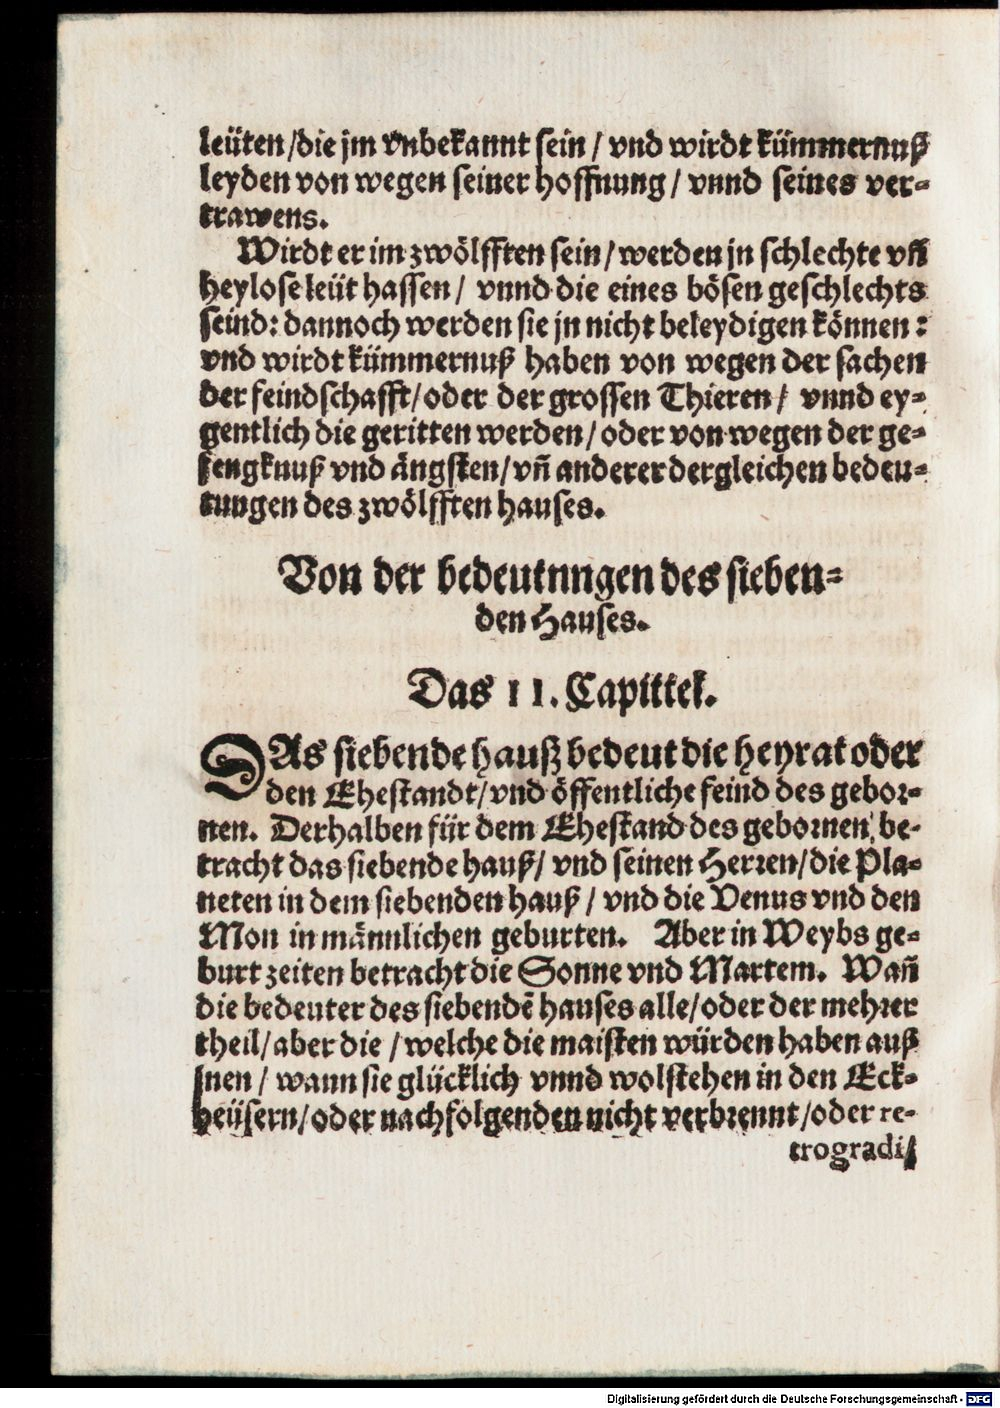 leüten /die jm vnbekannt sein / vnd wirdt kümmernuß
leyden von wegen seiner hoffnung / vnnd seines ver⸗
trawens.
Wirdt er im zwölfften sein / werden jn schlechte vñ
heylose leüt hassen / vnnd die eines bösen geschlechts
seind: dannoch werden sie jn nicht beleydigen können:
vnd wirdt kümmernuß haben von wegen der sachen
der feindschafft/oder der grossen Thieren / vnnd ey⸗
gentlich die geritten werden / oder von wegen der ge⸗
fengknuß vnd ängsten/vñ anderer dergleichen bedeu⸗
tungen des zwölfften hauses.
Von der bedeutnngen des sieben⸗
den Hauses.
Das 11. Capittel.
DAs siebende hauß bedeut die heyrat oder
den Ehestandt/vnd öffentliche feind des gebor⸗
nen. Derhalben für dem Ehestand des gebornen, be⸗
tracht das siebende hauß/ vnd seinen Herren/die Pla⸗
neten in dem siebenden hauß / vnd die Venus vnd den
Mon in männlichen geburten. Aber in Weybs ge⸗
burt zeiten betracht die Sonne vnd Martem. Wañ
die bedeuter des siebendē hauses alle/oder der mehrer
theil/aber die /welche die maisten würden haben auß
jnen / wann sie glücklich vnnd wolstehen in den Eck⸗
heüsern/oder nachfolgenden nicht verbrennt/oder re-
trogradi/
Digitalisierung gefördert durch die Deutsche Forschungsgemeinschaft - DFG